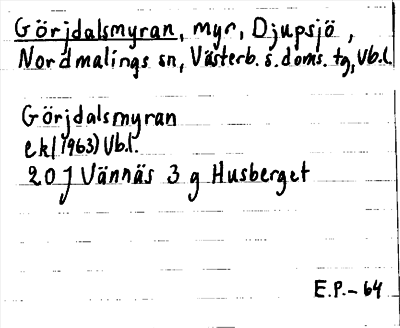 Görjdalsmyran, myr, Djupsjö,
Nordmalings sn, Västerb. s. doms. tg, Vb.l.
Görjdalsmyran
ekl (1963) Vb.l.
20 J Vännäs 3 g Husberget
E.P.-64